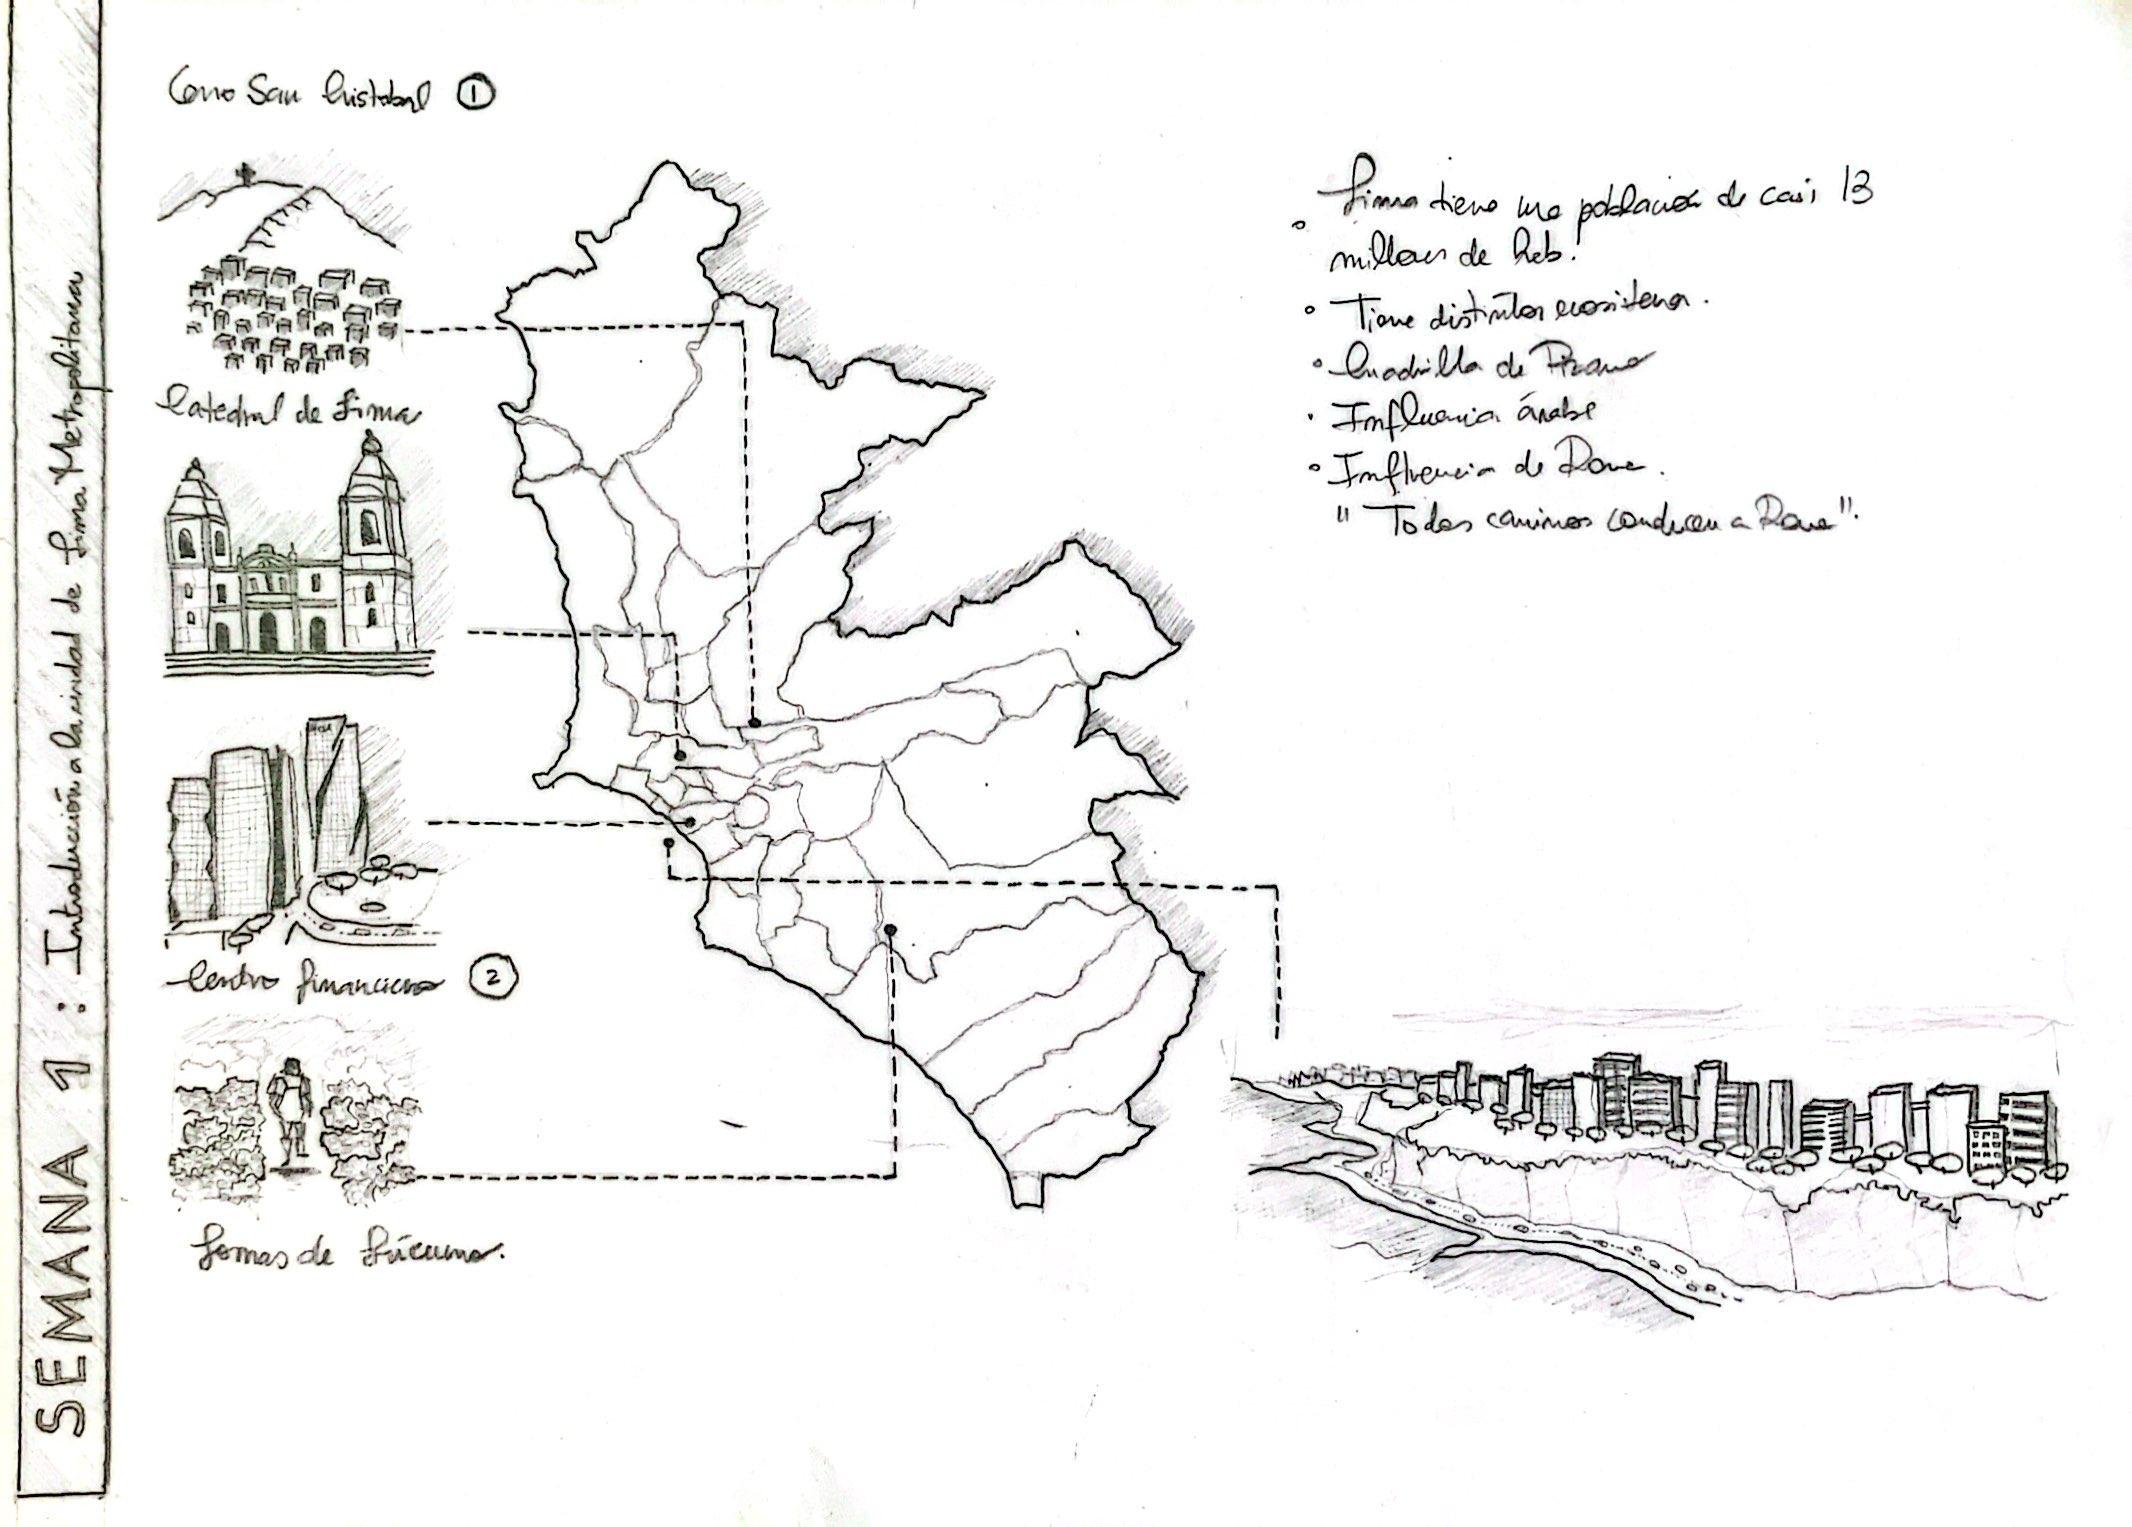 SEMANA 1 : Introducción a la ciudad de Lima Metropolitana
Cerro San Cristobal 1
Catedral de Lima
Centro financiero 2
Lomas de Lúcumo.
• Lima tiene una población de casi 13
millones de hab.
• Tiene distintos ecosistema.
• Cuadrilla de Pizarro
• Influencia árabe
• Influencia de Roma.
" Todos caminos conducen a Roma".